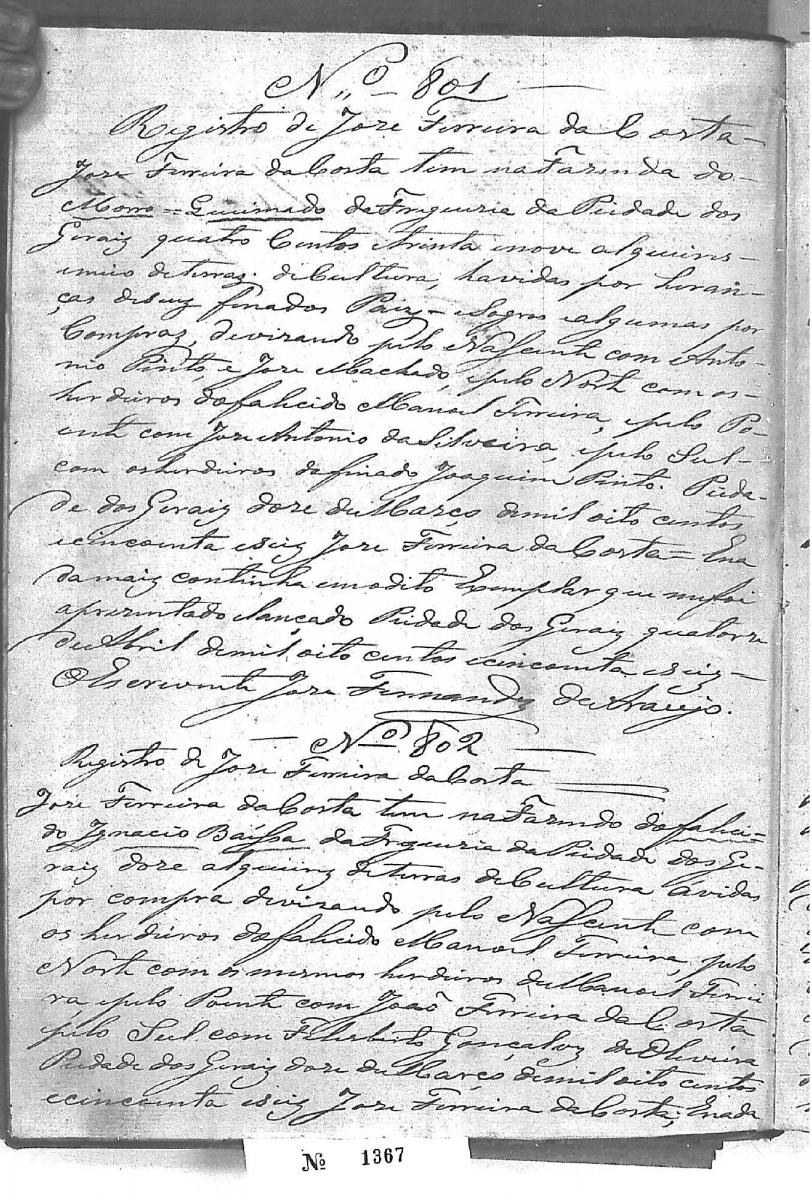 N.o 801
Registro de Jose Ferreira da Costa -
Jose Ferreira da Costa tem na Fazenda do -
Morro = Queimado da Freguezia da Piedade dos
Geraiz quatro Centos etrinta enove alqueires -
emeio de terraz. de Cultura, havidas por heran-
ças deseuz finados Paiz - eSogros ealgumas por
Compraz, devizando pelo Nascente com Anto-
nio Pinto, e Jose Machado, epelo Norte com os -
herdeiros dofalecido Manoel Ferreira, epelo Po-
ente com Jose Antonio da Silveira, epelo Sul -
com osherdeiros dofinado Joaquim Pinto. Pieda-
de dos Geraiz doze de Março demil oito centos
ecincoenta eseiz Jose Ferreira da Costa = Ena
damaiz continha emodito Exemplar que mefoi
aprezentado elançado Piedade dos Geraiz quatorze
de Abril demil oito centos ecincoenta eseiz -
O Escrevente Jose Fernandez de Araujo.
- N.o 802 -
Registro de Jose Ferreira da Costa
Jose Ferreira da Costa tem na Fazenda do falici=
do Ignacio Baissa da Freguezia da Piedade dos Ge-
raiz doze alqueirez deterras de Cultura avidas
por compra devizando pelo Nascente com
os herdeiros dofalecido Manoel Ferreira, pelo
Norte com os mesmos herdeiros de Manoel Ferrei
ra, epelo Poente com João Ferreira da Costa
pelo Sul com Felisberto Gonçalvez de Oliveira
Piedade dos Geraiz doze de Março demil oito centos
ecincoenta eseiz Jose Ferreira da Costa; Enada
No 1367